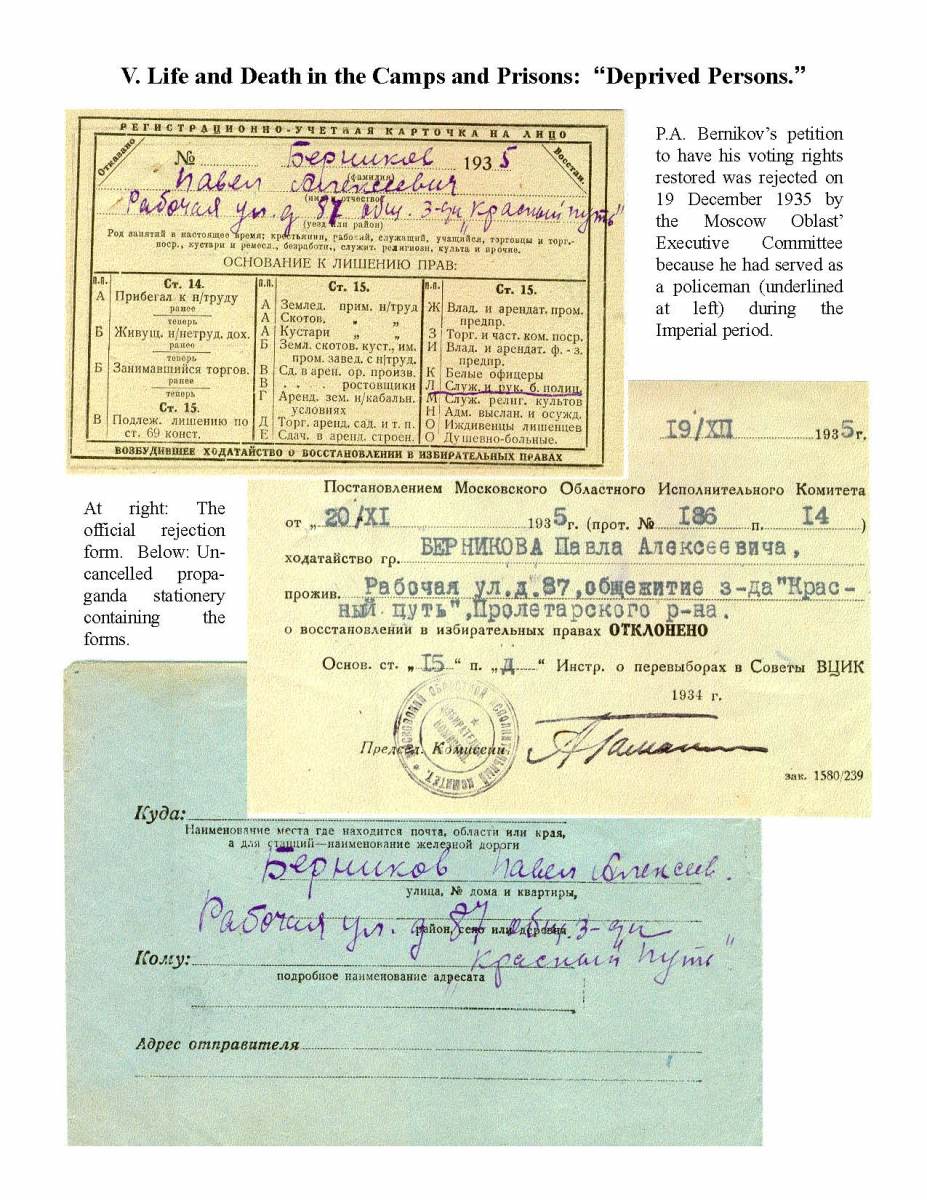 V. Life and Death in the Camps and Prisons: “Deprived Persons.”
РЕГИСТРАЦИОННО-УЧЕТНАЯ КАРТОЧКА НА ЛИЦО
Отказано
Восстан.
№ Берников 1935
(фамилия)
Павел Алексеевич
(имя и отчество)
Рабочая ул. д 87 общ. з-ди "Красный путь"
(уезд или район)
Род занятий в настоящее время: крестьянин, рабочий, служащий, учащийся, торговцы и торг.-
поср., кустари и ремесл., безработн., служит. религиозн. культа и прочие.
ОСНОВАНИЕ К ЛИШЕНИЮ ПРАВ:
П.П.
Ст. 14.
А Прибегал к н/труду
ранее
теперь
Б Живущ. н/нетруд. дох.
ранее
теперь
Б Занимавшийся торгов.
ранее
теперь
Ст. 15.
В Подлеж. лишению по
ст. 69 конст.
П.П.
Ст. 15.
А Землед. прим. н/труд
А Скотов. " "
А Кустари " "
Б Земл. скотов. куст., им.
пром. завед. с н/труд.
В Сд. в арен. ор. произв.
В . . . . ростовщики
Г Аренд. зем. н/кабальн.
условиях
Д Торг. аренд. сад. и т. п.
Е Сдач. в аренд. строен.
П.П.
Ст. 15.
Ж Влад. и арендат. пром.
предпр.
З Торг. и част. ком. поср.
И Влад. и арендат. ф.-з.
предпр.
К Белые офицеры
Л Служ. и рук. б. полиц.
М Служ. религ. культов
Н Адм. выслан. и осужд.
О Иждивенцы лишенцев
О Душевно-больные.
ВОЗБУДИВШЕЕ ХОДАТАЙСТВО О ВОССТАНОВЛЕНИИ В ИЗБИРАТЕЛЬНЫХ ПРАВАХ
P.A. Bernikov’s petition
to have his voting rights
restored was rejected on
19 December 1935 by
the Moscow Oblast’
Executive Committee
because he had served as
a policeman (underlined
at left) during the
Imperial period.
At right: The
official rejection
form. Below: Un-
cancelled propa-
ganda stationery
containing the
forms.
19/XII 1935г.
Постановлением Московского Областного Исполнительного Комитета
от „20/XI 1935г. (прот. № 186 п. 14 )
ходатайство гр. БЕРНИКОВА Павла Алексеевича,
прожив. Рабочая ул.д.87,общежитие з-да"Крас-
ный путь",Пролетарского р-на.
о восстановлении в избирательных правах ОТКЛОНЕНО
Основ. ст. „15“ п. „Д“ Инстр. о перевыборах в Советы ВЦИК
1934 г.
Председ. Комиссии
зак. 1580/239
Куда:
Наименование места где находится почта, области или края,
а для станций—наименование железной дороги
Берников Павел Алексеев.
улица, № дома и квартиры,
Рабочая ул. д 87 общ. з-ди
район, село или деревня
Кому: "Красный Путь"
подробное наименование адресата
Адрес отправителя